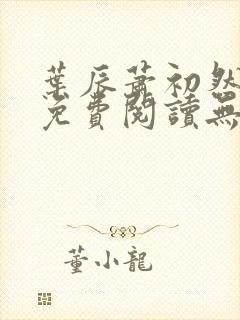 葉辰蕭初然
免費閱讀無
董小龍